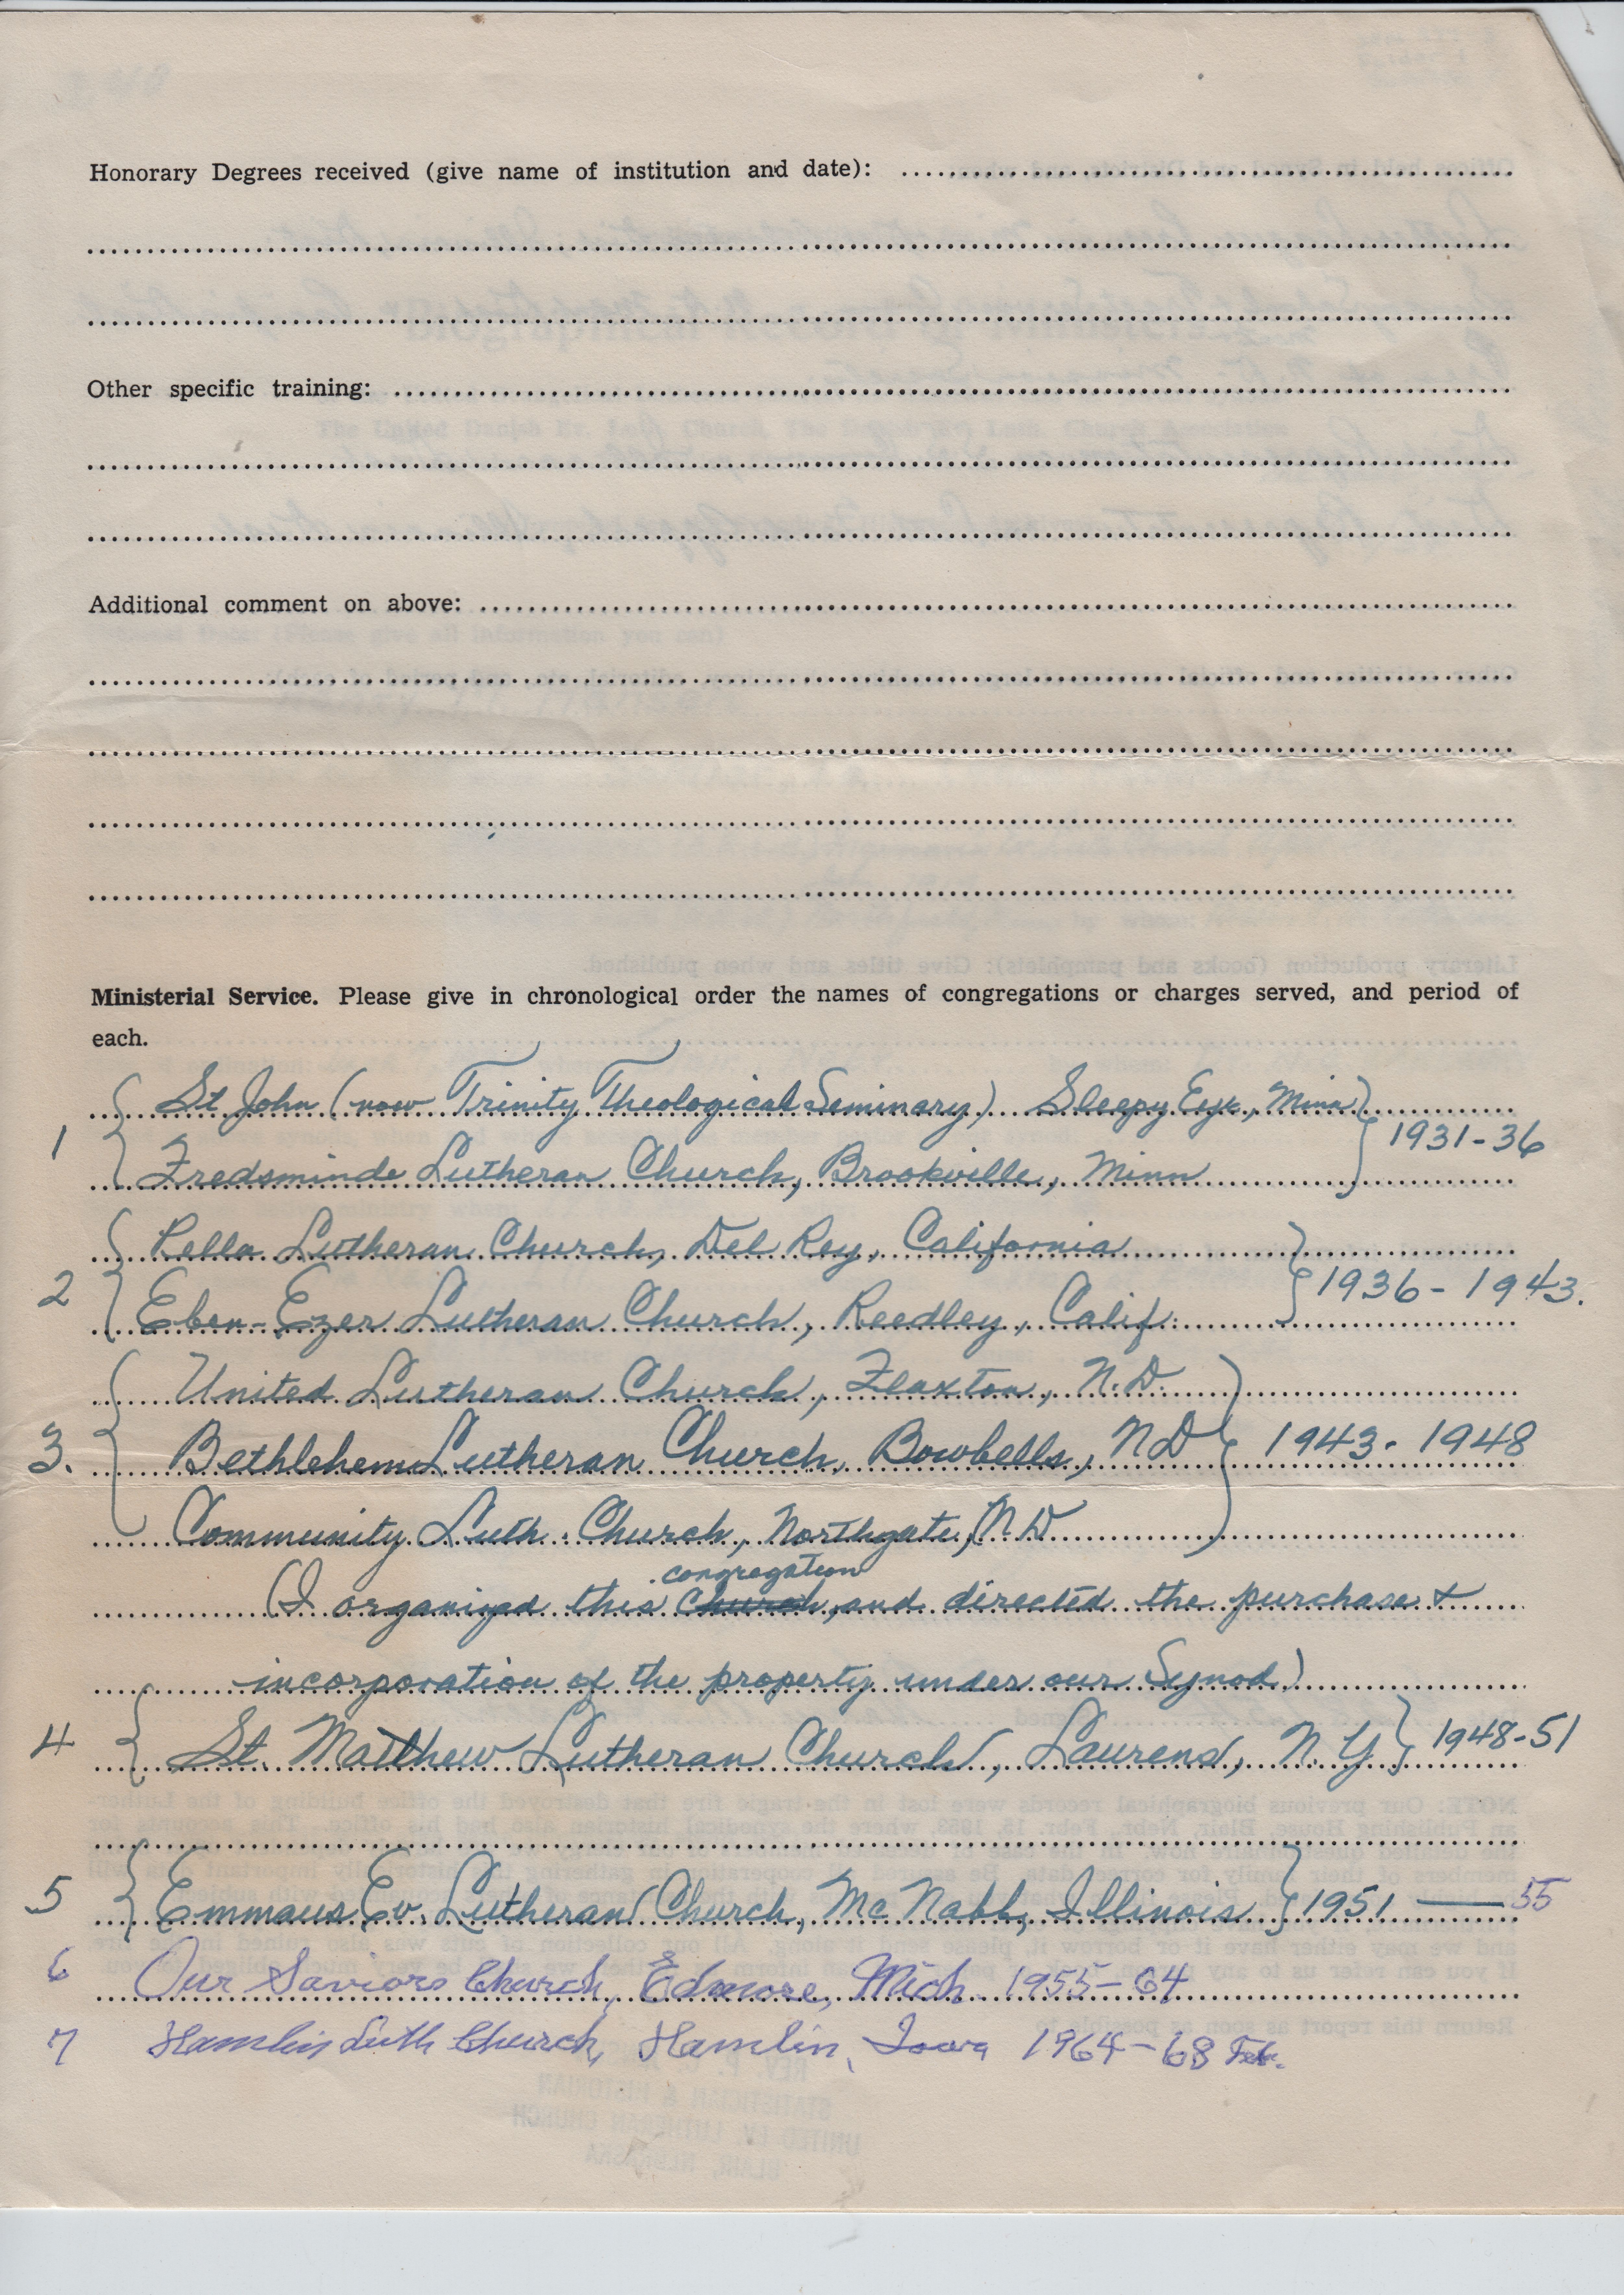 Honorary Degrees received (give name of institution and date):
Other specific training:
Additional comment on above:
Ministerial Service. Please give in chronological order the names of congregations or charges served, and period of
each.
St John (now Trinity Theological Seminary) Sleepy Eye, Minn
1 Fredsminde Lutheran Church, Brookville, Minn 1931-36
Lutheran Church, Del Rey, California
2 Eben-Ezer Lutheran Church, Reedley, Calif. 1936-1943.
United Lutheran Church, Flaxton, N.D.
3. Bethlehem Lutheran Church, Bowbells, ND 1943-1948
Community Luth. Church, Northgate, N.D
congregation
(I organized this Church, and directed the purchase &
incorporation of the property under our Synod.)
4 St. Matthew Lutheran Church, Laurens, N.Y 1948-51
5 Emmaus Ev. Lutheran Church, Mc Nabb, Illinois 1951 — 55
6 Our Saviors Church, Edmore, Mich. 1955-64
7 Hamlin Luth Church, Hamlin, Iowa 1964-68 Feb.